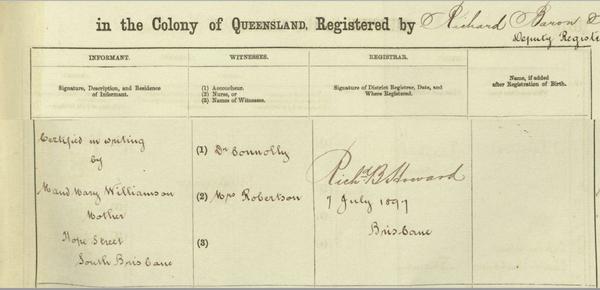 in the Colony of QUEENSLAND, Registered by Richard Baron
Deputy Regist
INFORMANT.
WITNESSES.
REGISTRAR.
Name, if added
after Registration of Birth.
Signature, Description, and Residence
of Informant.
(1) Accoucheur.
(2) Nurse, or
(3) Names of Witnesses.
Signature of District Registrar, Date, and
Where Registered.
Certified in writing
by
Maud Mary Williamson
Mother
Hope Street
South Brisbane
(1) Dr Connolly
(2) Mrs Robertson
(3)
Richd B Howard
7 July 1897
Brisbane